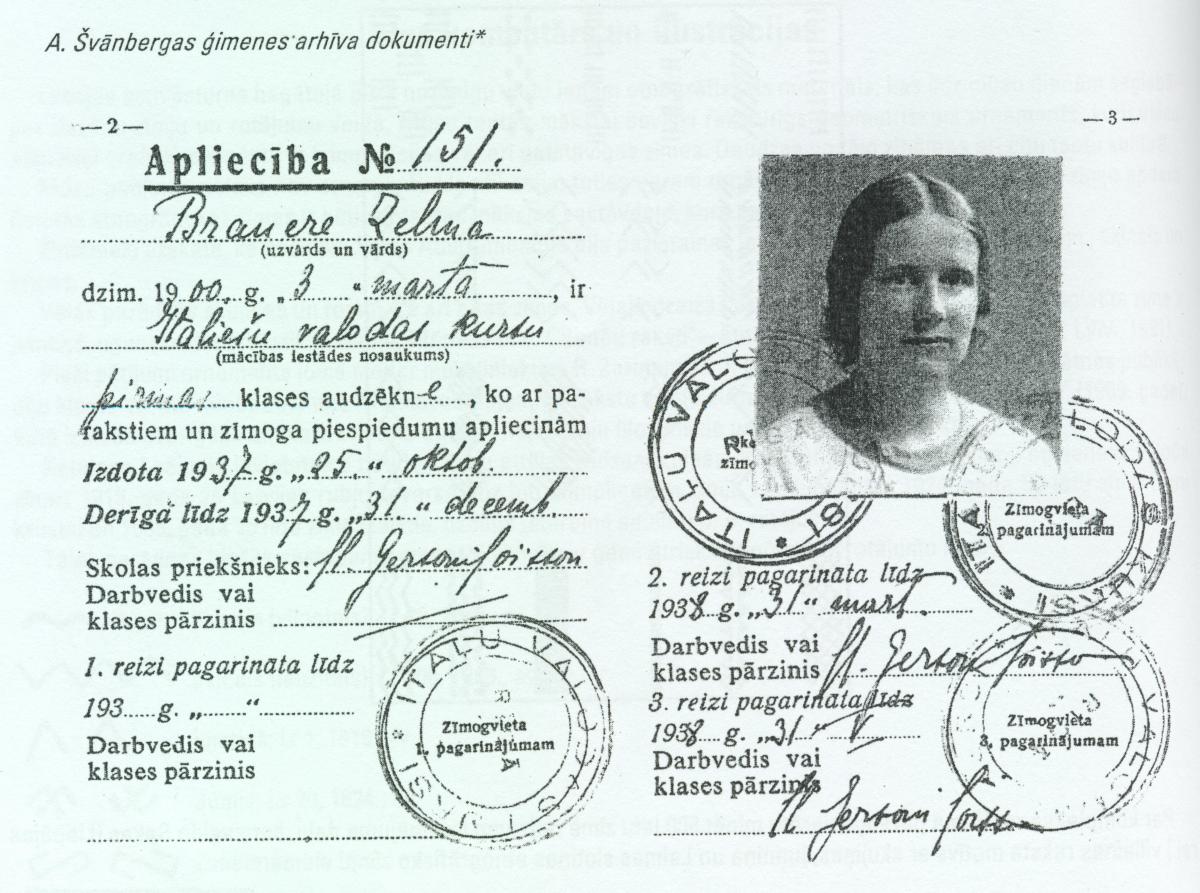 A. Švānbergas ģimenes arhīva dokumenti*
— 2 —
Apliecība № 151.
Brauere Zelma
(uzvārds un vārds)
dzim. 1900. g. „3 “ martā, ir
Italiešu valodas kursu
(mācības iestādes nosaukums)
pirmas klases audzēkn-e, ko ar pa-
rakstiem un zīmoga piespiedumu apliecinām
Izdota 1937 g. „25 “ oktob.
Derīga līdz 1937 g. „31. “ decemb.
Skolas priekšnieks:
Darbvedis vai
klases pārzinis
1. reizi pagarināta līdz
193 g. „ “
Darbvedis vai
klases pārzinis
ITALU VALODAS
Zīmogvieta
1. pagarinājumam
— 3 —
ITALU VALO
zīmo
Zīmogvieta
2. pagarinājumam
2. reizi pagarināta līdz
1938 g. „31 “ mart.
Darbvedis vai
klases pārzinis
3. reizi pagarināta līdz
1938 g. „31 “
Darbvedis vai
klases pārzinis
Zīmogvieta
3. pagarinājumam